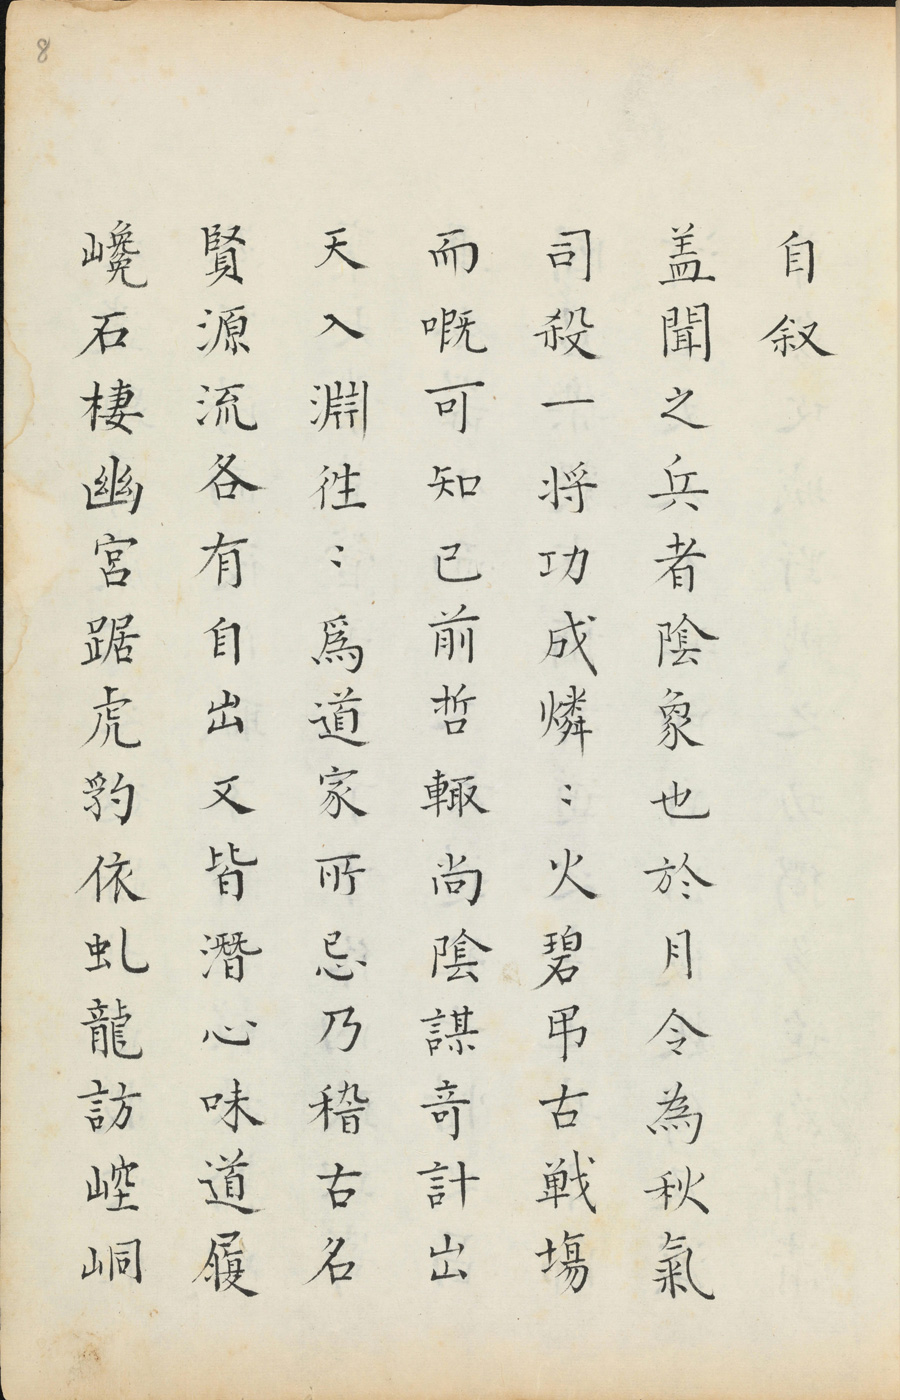 8
自叙
盖聞之兵者陰象也於月令為秋氣
司殺一将功成燐〻火碧吊古戦塲
而嘅可知已前哲輙尚陰謀竒計出
天入淵徃〻爲道家所忌乃稽古名
賢源流各有自出又皆潛心味道履
巉石棲幽宮踞虎豹依虬龍訪崆峒